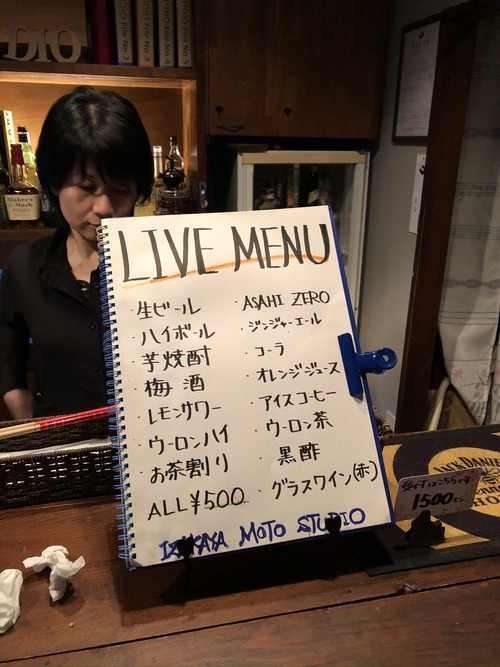 DIO
MOTO File No.
Maker's
Mark
LIVE MENU
・生ビール
・ハイボール
・芋焼酎
・梅酒
・レモンサワー
・ウーロンハイ
・お茶割り
ALL ¥500
・ASAHI ZERO
・ジンジャーエール
・コーラ
・オレンジジュース
・アイスコーヒー
・ウーロン茶
・黒酢
・グラスワイン(赤)
IZAKAYA MOTO STUDIO
受付はこちらです
1500
JACK DANIEL